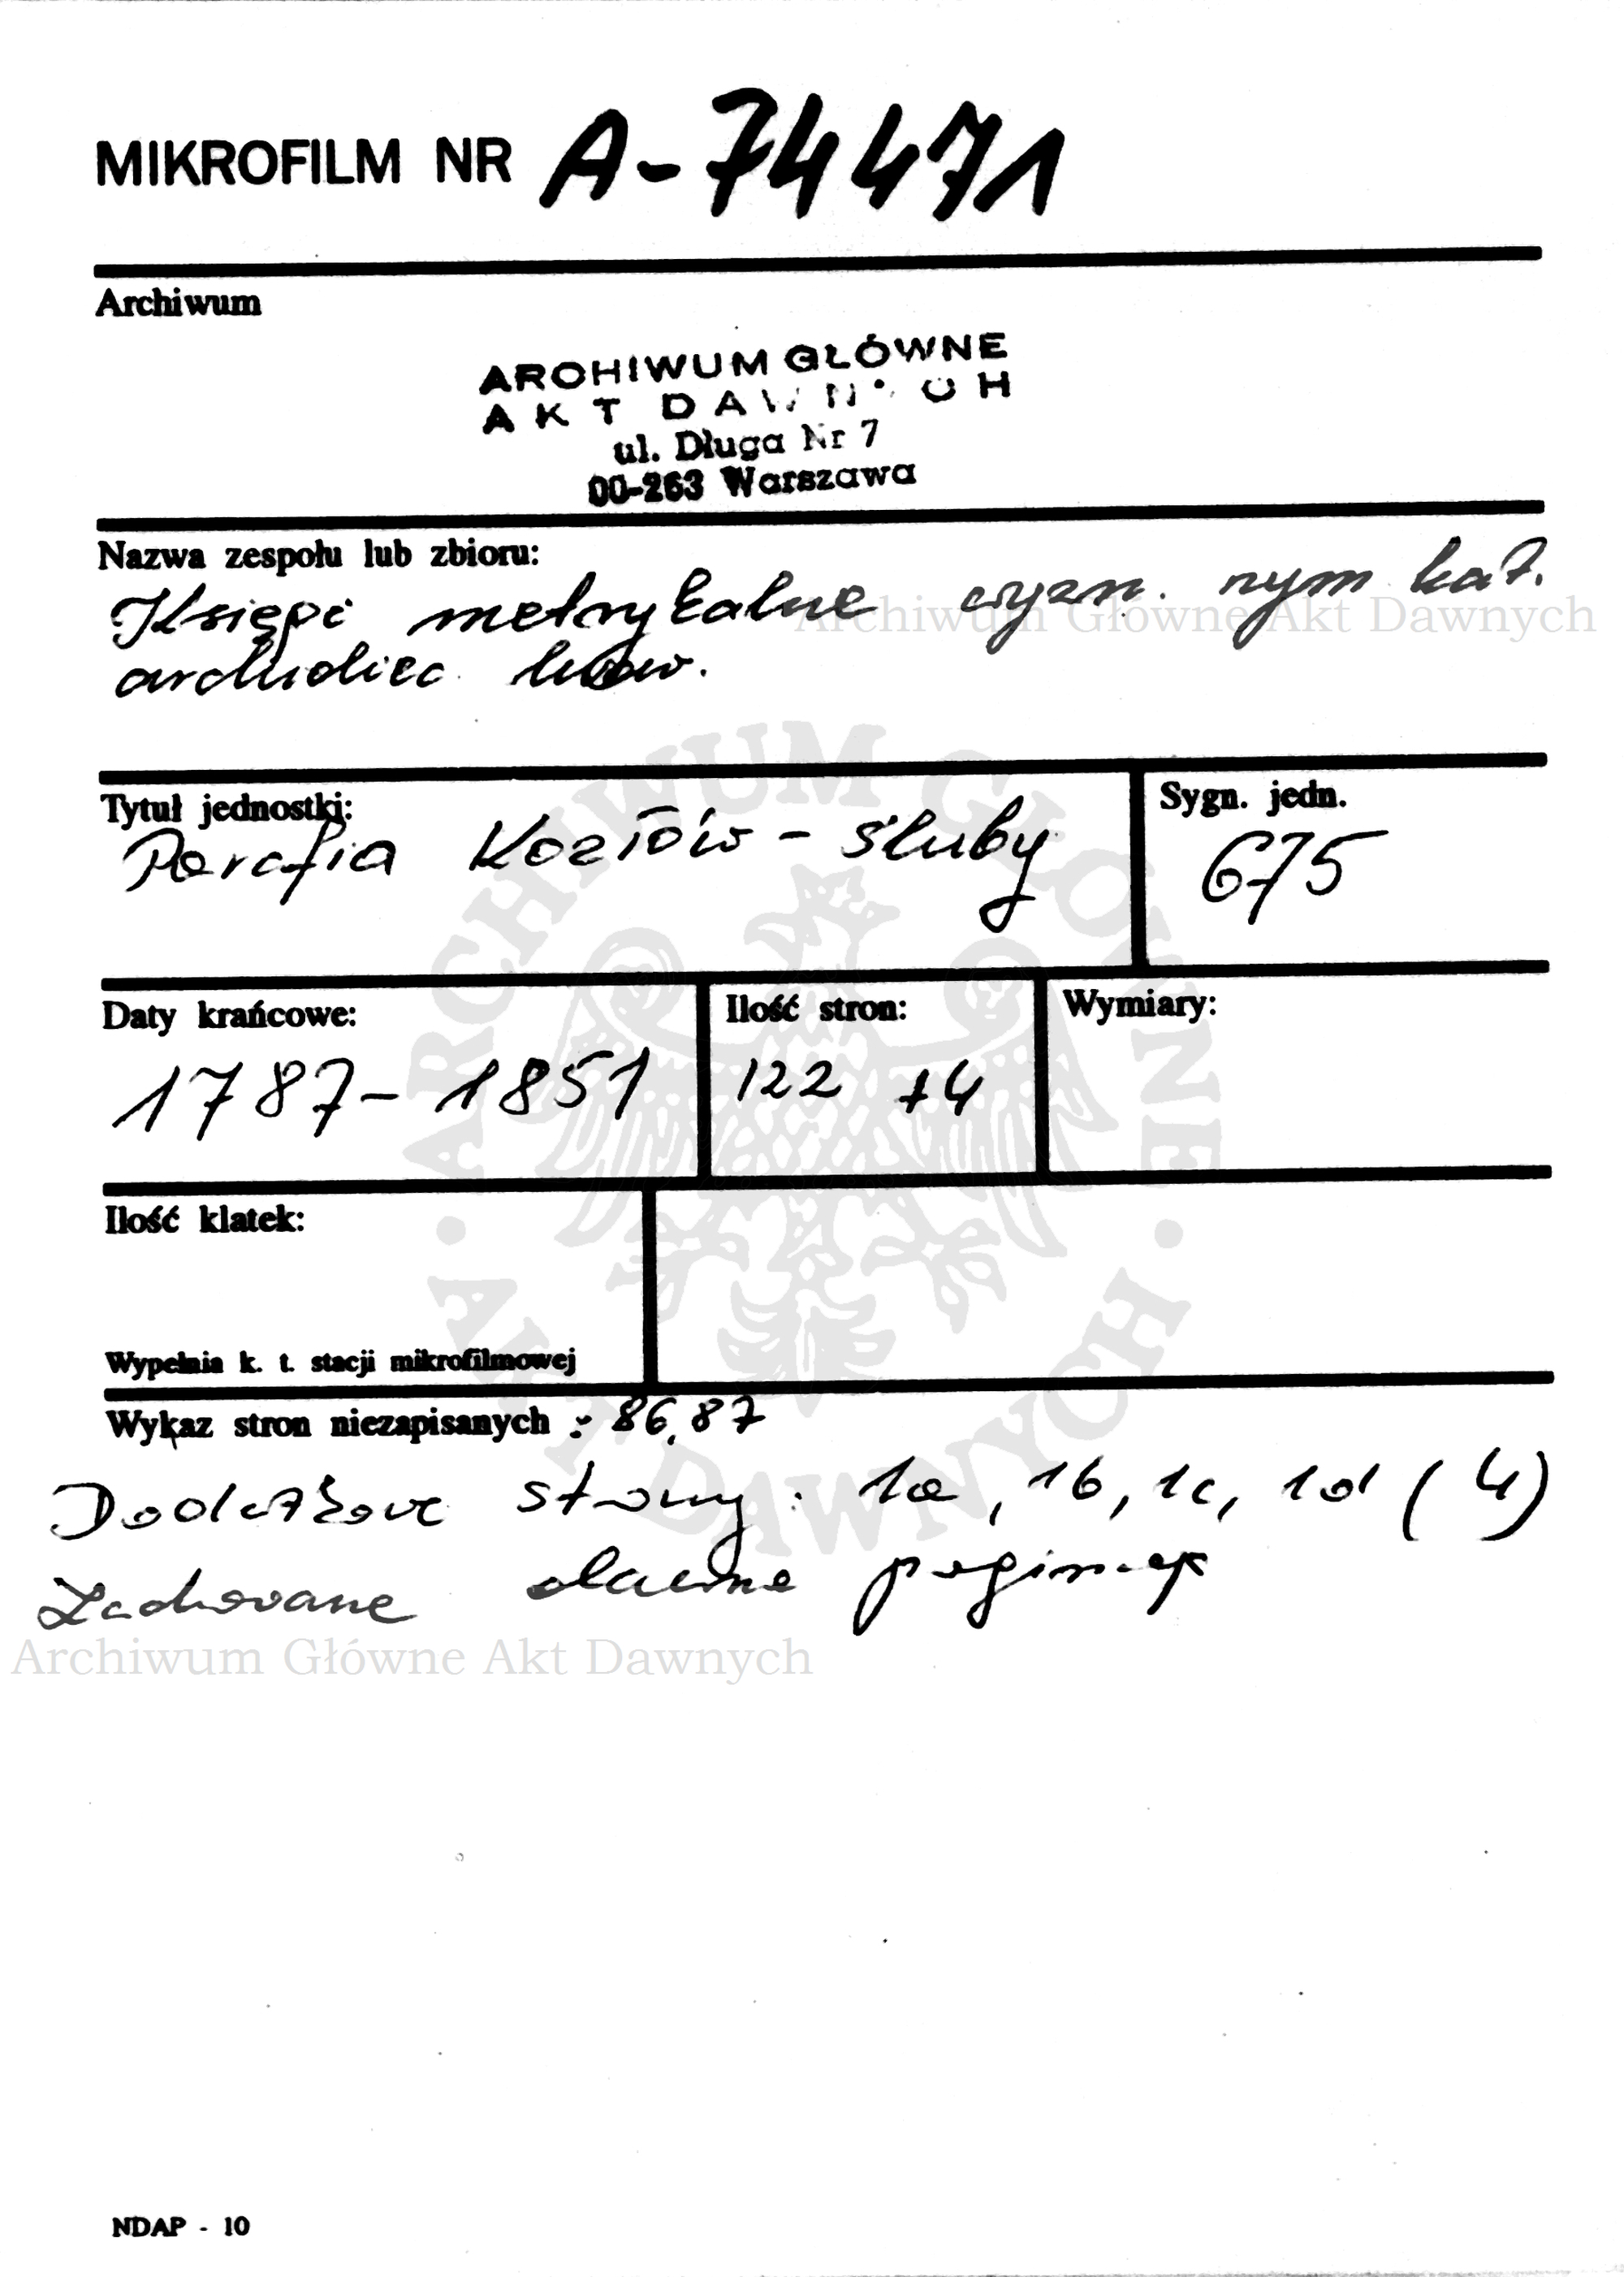 MIKROFILM NR A-74471
Archiwum
ARCHIWUM GŁÓWNE
AKT DAWNYCH
ul. Długa Nr 7
00-263 Warszawa
Nazwa zespołu lub zbioru:
Księgi metrykalne wyzn. rzym kat.
Archiwum Główne Akt Dawnych
archidiec. lwow.
Tytuł jednostki:
Parafia Kozłów - śluby
Sygn. jedn.
675
Daty krańcowe:
1787-1851
Ilość stron:
122 +4
Wymiary:
Ilość klatek:
Wypełnia k. t. stacji mikrofilmowej
Wykaz stron niezapisanych: 86,87
Dodatkowe strony: 1a, 1b, 1c, 1d (4)
Zachowano dawną paginację
Archiwum Główne Akt Dawnych
ARCHIWUM GŁÓWNE · AKT DAWNYCH ·
NDAP - 10